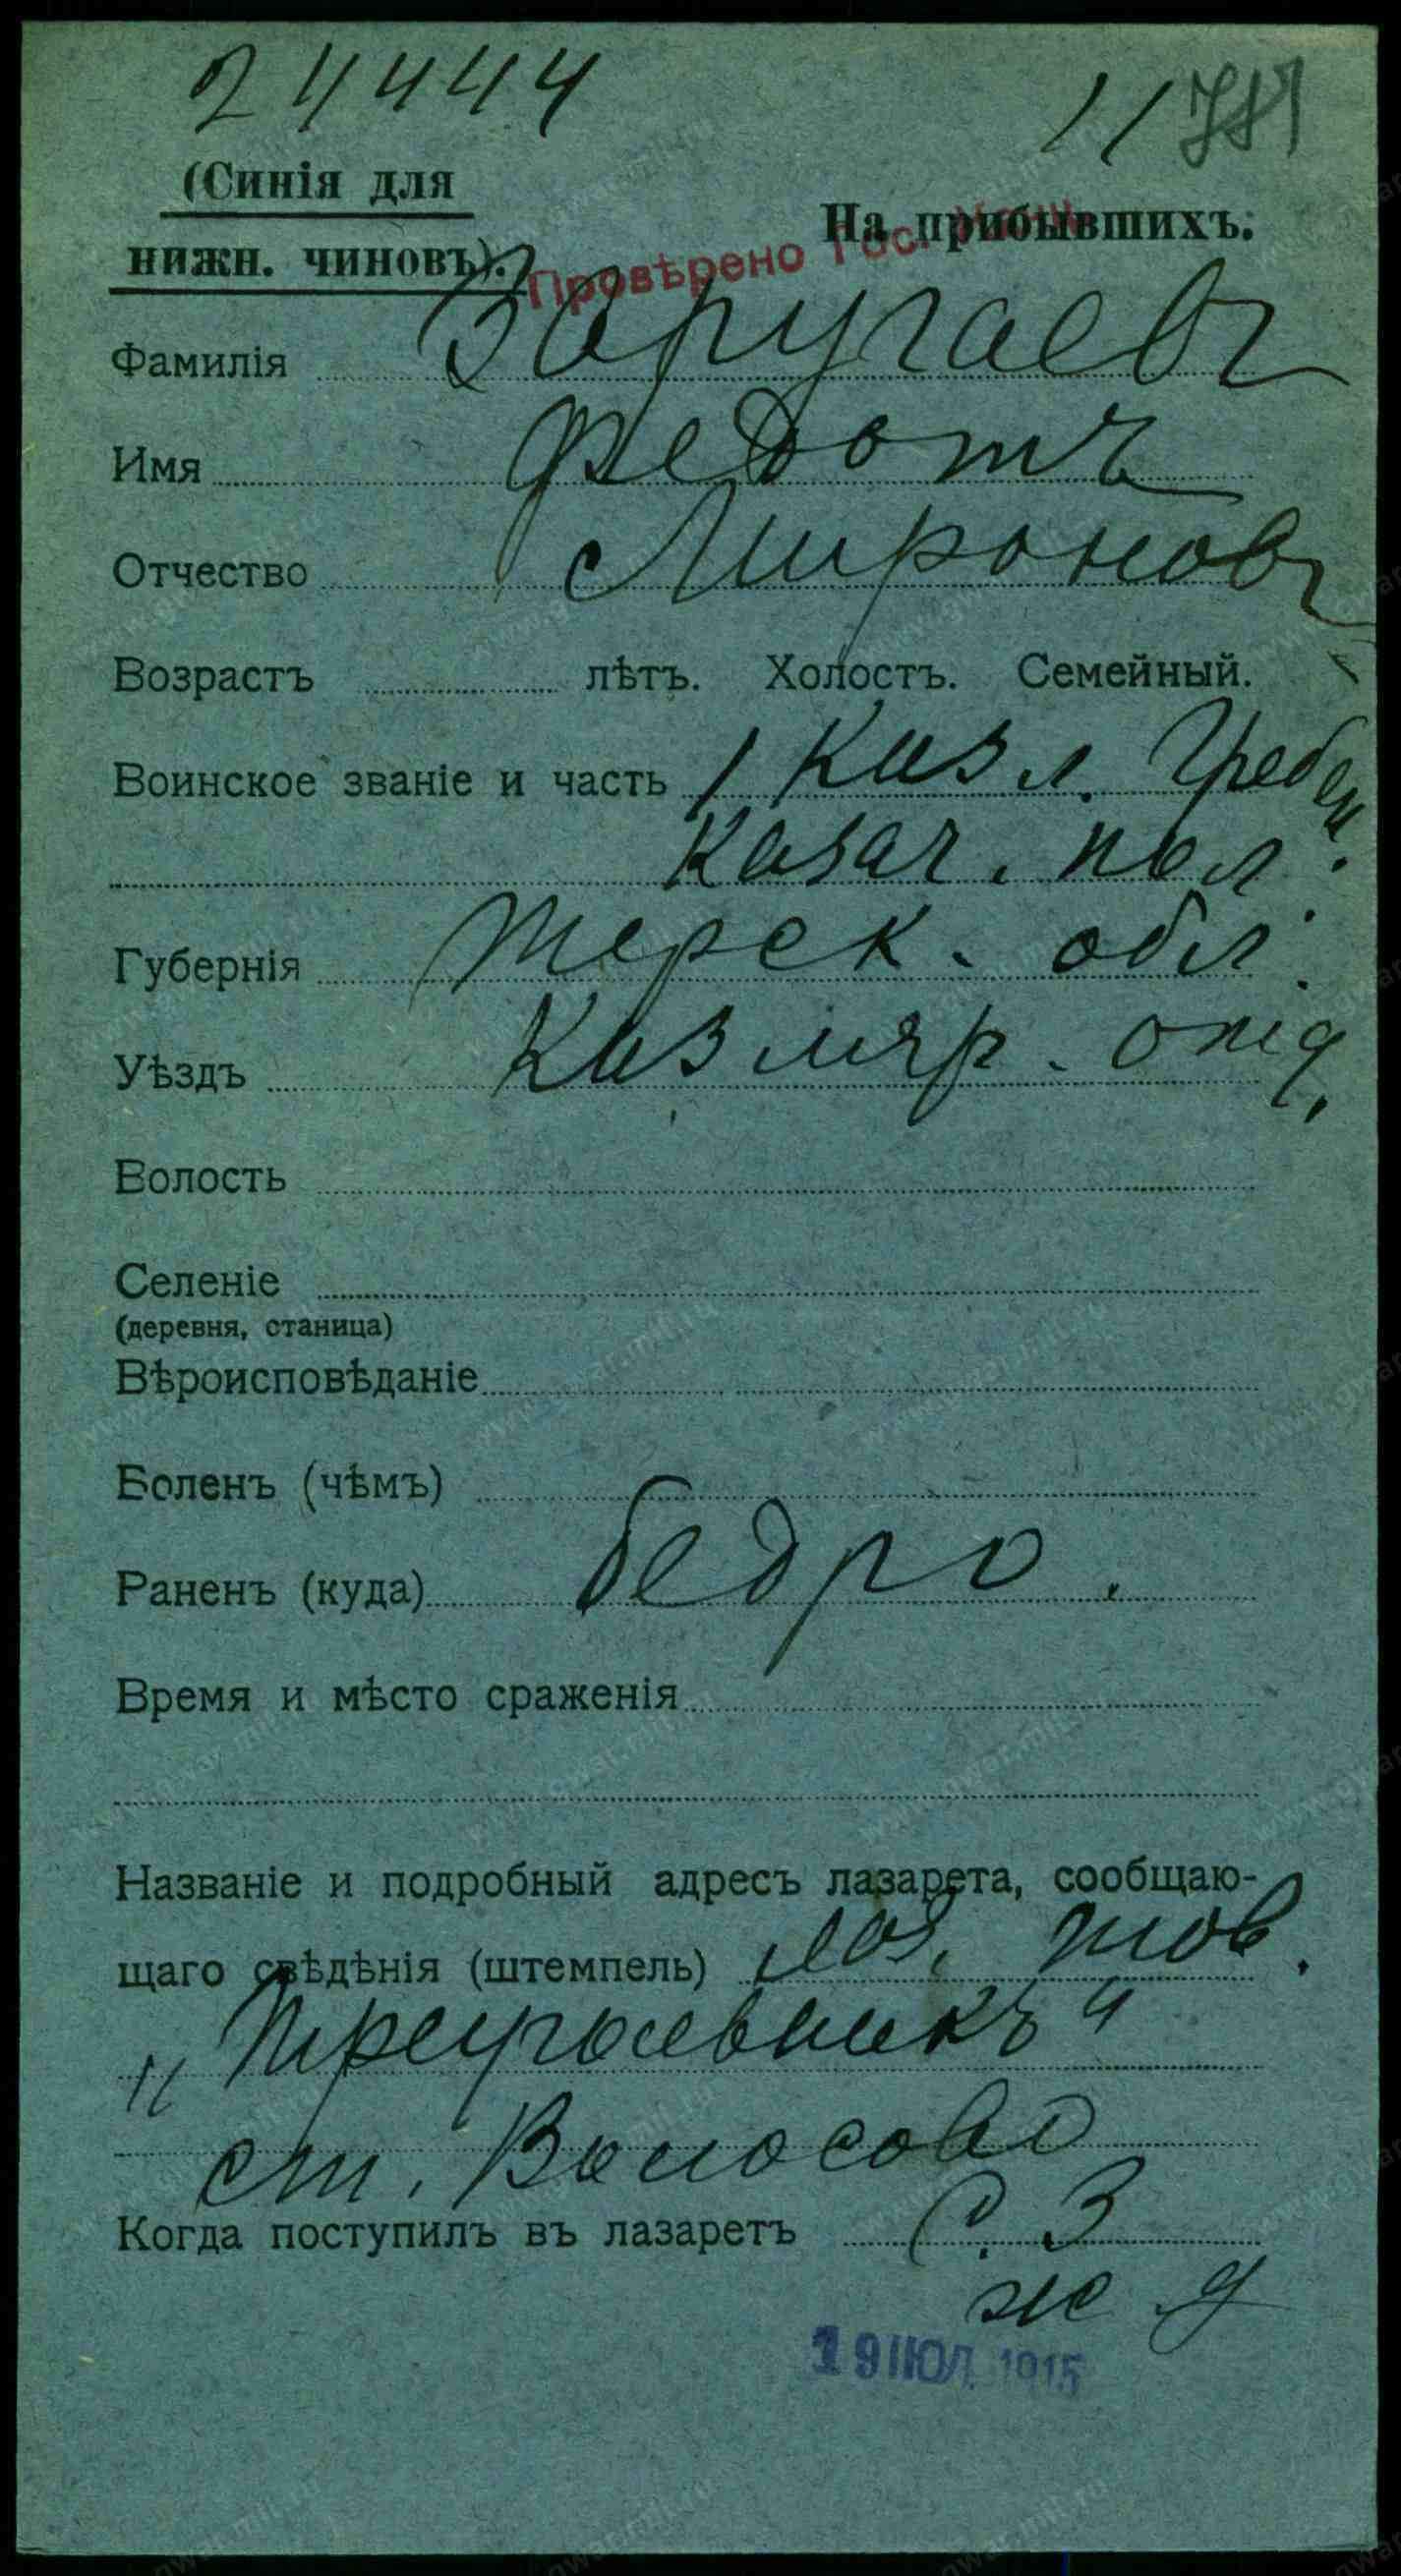 24444
11 781
(Синія для
нижн. чиновъ).
На прибывшихъ.
Провѣрено Гос.
Фамилія Заругаевъ
Имя Федотъ
Отчество Миронов
Возрастъ лѣтъ. Холостъ. Семейный.
Воинское званіе и часть 1 Кизл. Гребен.
Казач. пол.
Губернія Терск. обл.
Уѣздъ Кизляр. отд.
Волость
Селеніе
(деревня, станица)
Вѣроисповѣданіе
Боленъ (чѣмъ)
Раненъ (куда) бедро.
Время и мѣсто сраженія
Названіе и подробный адресъ лазарета, сообщаю-
щаго свѣдѣнія (штемпель) лаз. тов.
"Треугольникъ"
ст. Волосово
Когда поступилъ въ лазаретъ С. З.
ж д
19 ІЮЛ. 1915